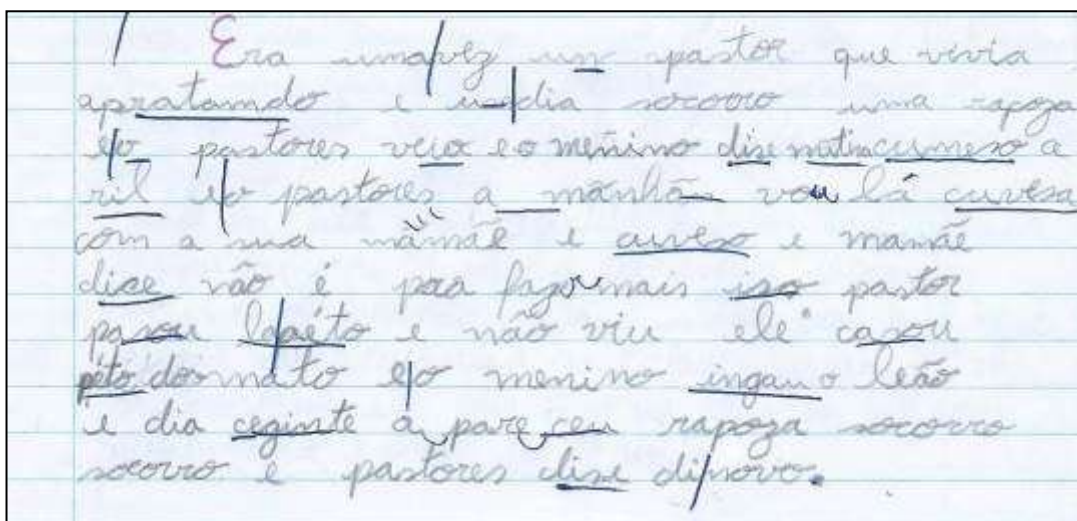 Era umavez un pastor que vivia
apratamdo e u dia socorro uma rapoza
eo pastores veio eo menino dise mutira cumeso a
ril eo pastores a manhã vou lá cuvesa
com a sua mamãe e cuveso e mamãe
dice não é pra fazer mais iso pastor
pasou lá e não viu ele casou
péto do mato eo menino ingano leão
e dia ceginte a pare ceu rapoza socorro
socorro e pastores dise dinovo.